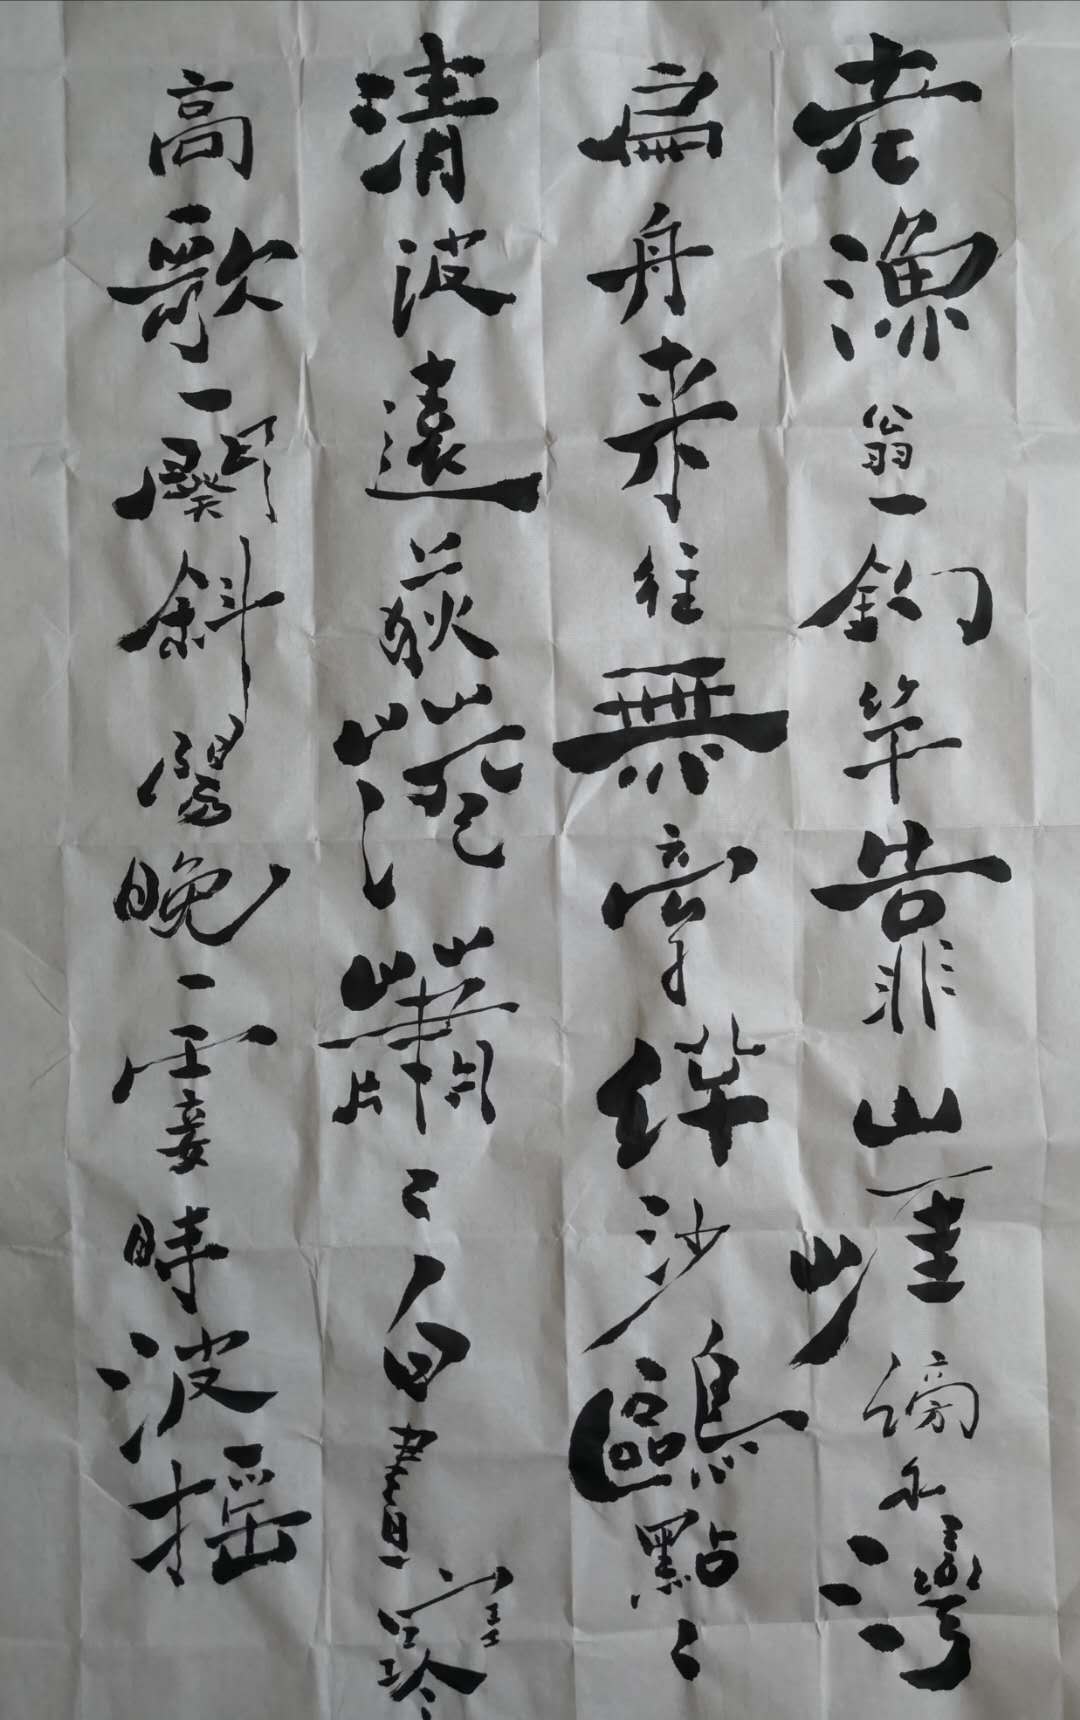 老漁翁一釣竿靠山崖傍水灣
扁舟来往無牽絆沙鷗點〻
清波遠荻港蕭〻白晝寒
高歌一闋斜陽晚一霎時波搖